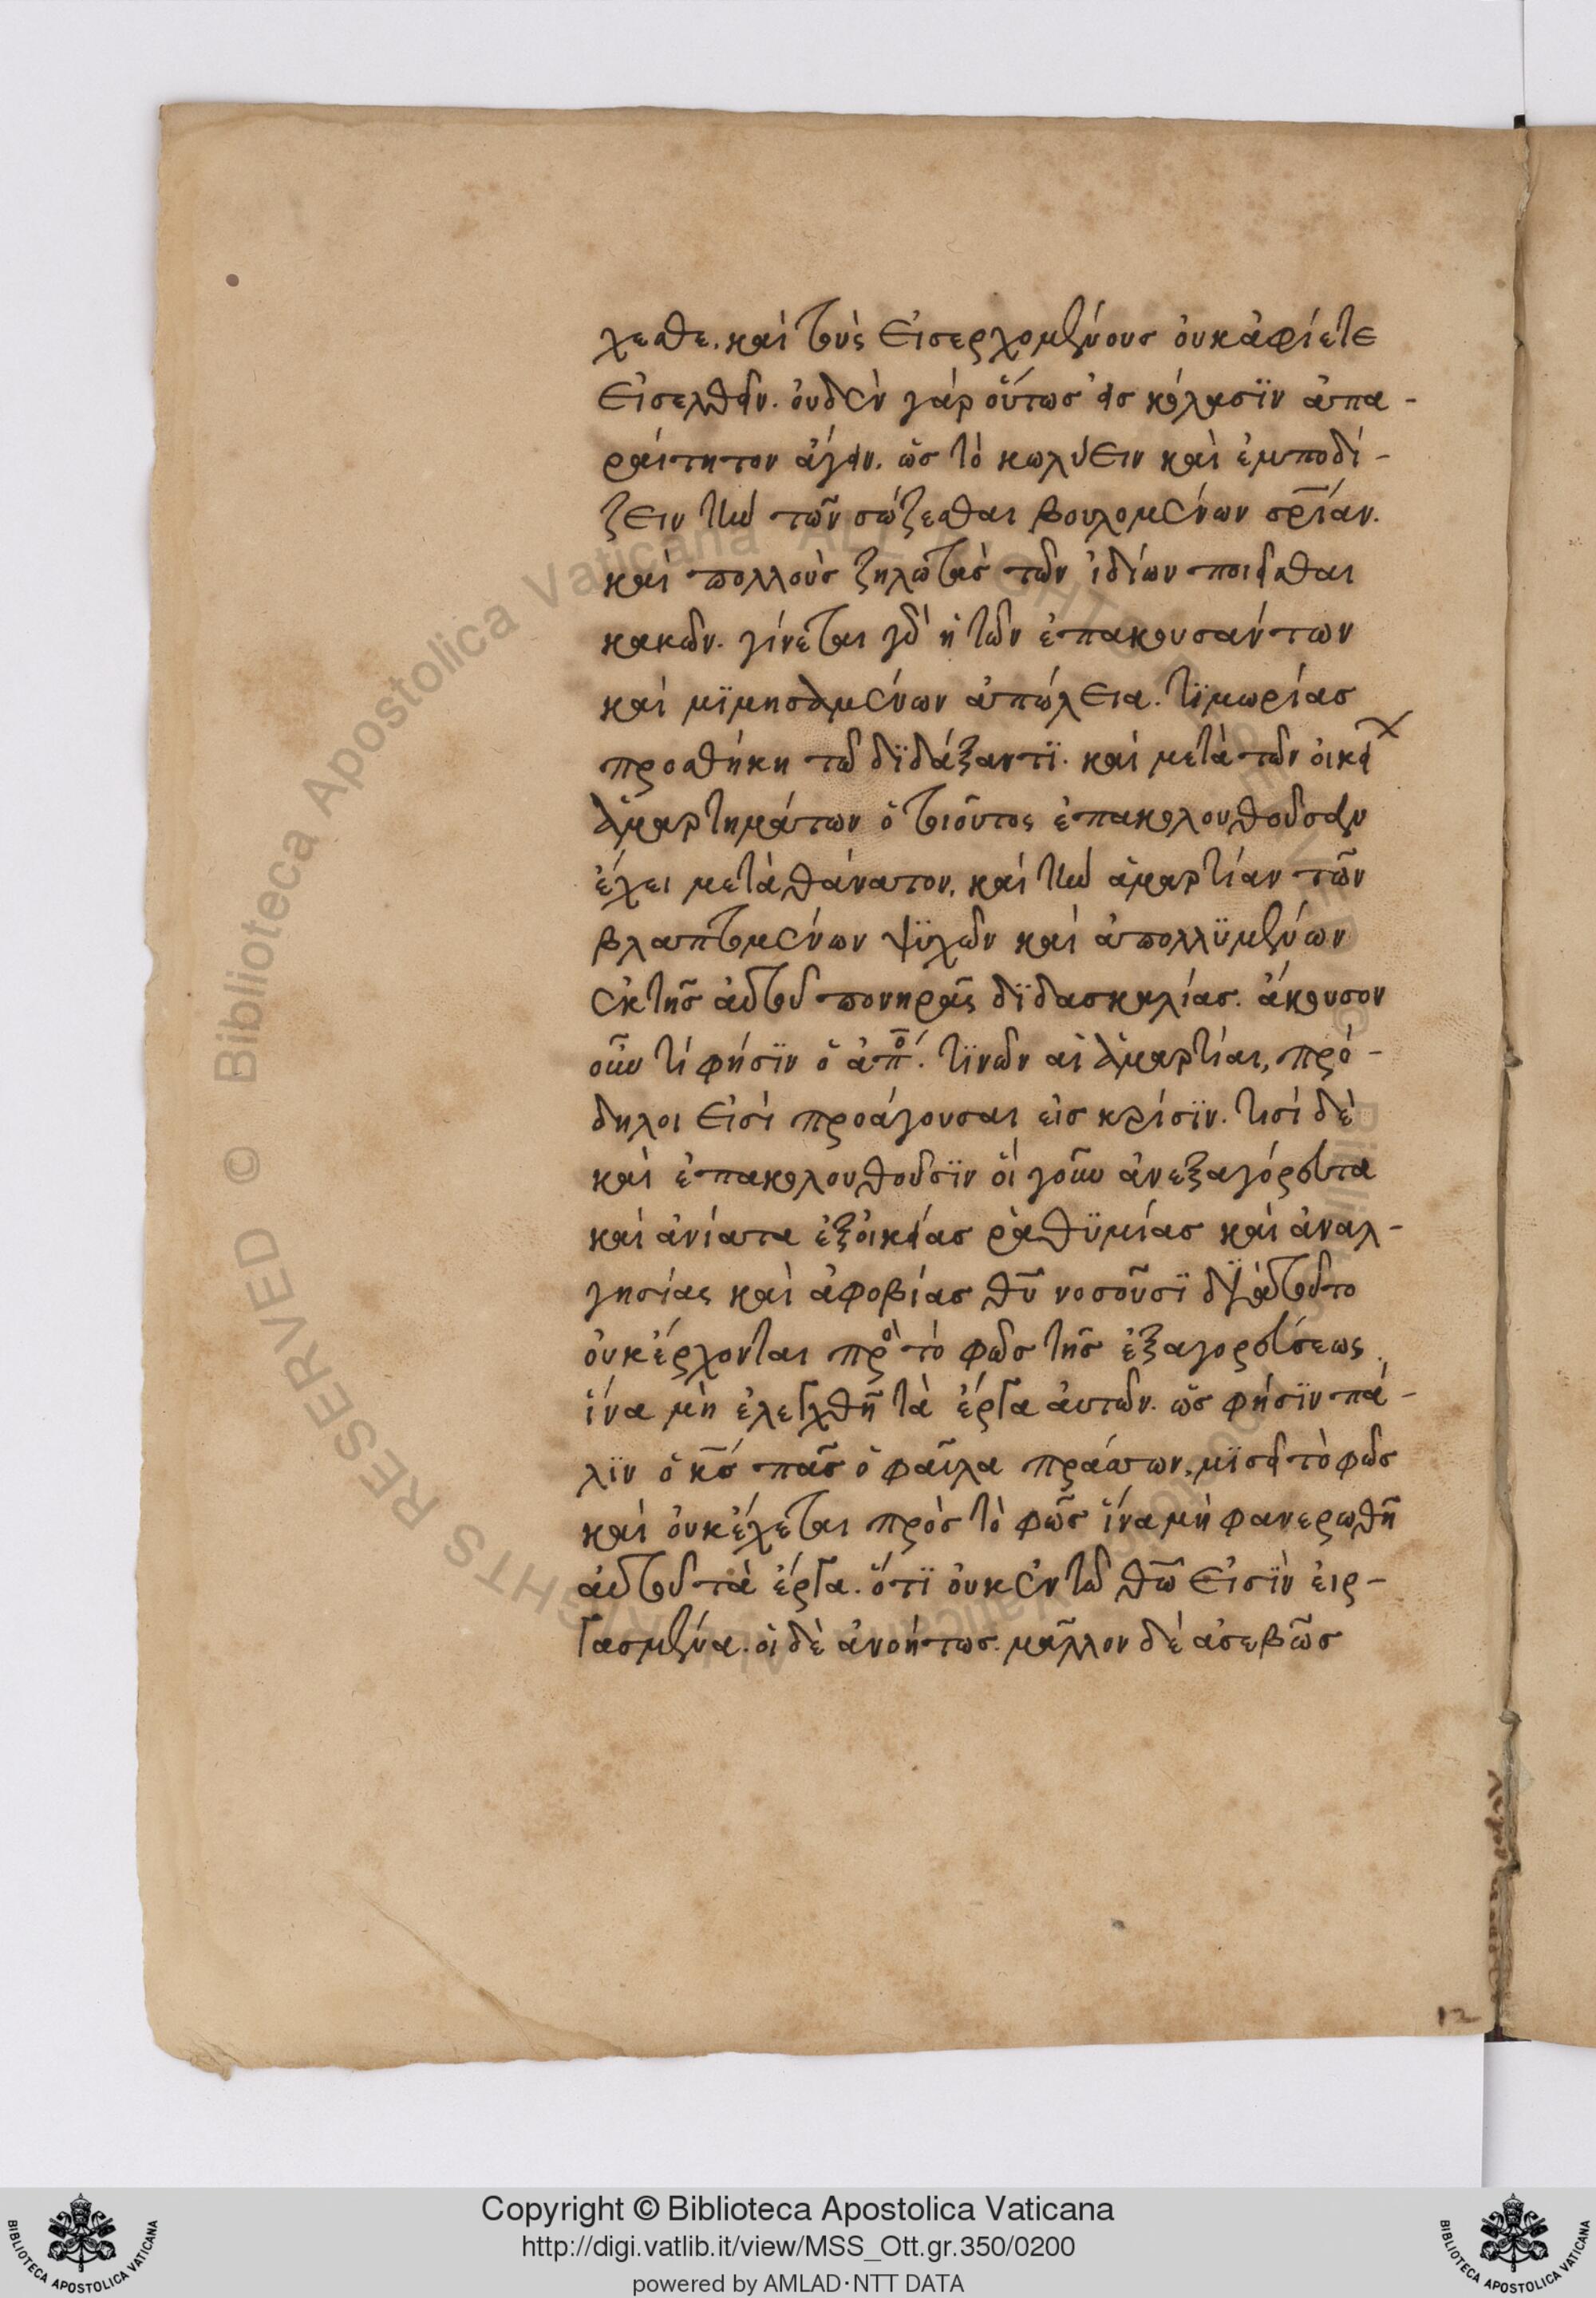 χεσθε. καὶ τοὺς εἰσερχομένους ὀυκ ἀφίετε
εἰσελθεῖν. ὀυδὲν γὰρ ὅυτως ἐις κόλασϊν ἀπα-
ραίτητον ἄγειν. ὡς τὸ κωλύειν καὶ ἐμποδί-
ζειν τὴν τῶν σώζεσθαι βουλομένων σρ̅ίαν.
καὶ πολλοὺς ζηλωτὰς τῶν ἰδίων ποιεῖσθαι
κακῶν. γίνεται γὰρ ἡ τῶν ἐπακουσάντων
καὶ μϊμησαμένων ἀπώλεια. τϊμωρίας
προσθήκη τῶ δϊδάξαντϊ. καὶ μετὰ τῶν οἰκεί
ἁμαρτημάτων ὁ τοιοῦτος ἐπακολουθοῦσαν
ἔχει μετὰ θάνατον, καὶ τὴν ἁμαρτίαν τῶν
βλαπτομένων ψϋχῶν καὶ ἀπολλϋμένων
ἐκ τῆς ἀυτοῦ πονηρᾶς δϊδασκαλίας. ἄκουσον
οὖν τί φήσϊν ὁ ἀπο̅́. τϊνῶν αἱ ἁμαρτίαι, πρό-
δηλοι εἰσὶ προάγουσαι εἰς κρίσϊν. τισὶ δὲ
καὶ ἐπακολουθοῦσϊν ὅι γοῦν ἀνεξαγόρευτα
καὶ ἀνίατα ἐξ οἰκείας ῥαθϋμίας καὶ ἀναλ-
γησίας καὶ ἀφοβίας θυ̅ νοσοῦσϊ δϊατοῦτο
ὀυκ ἔρχονται πρὸ τὸ φῶς τῆς ἐξαγορεύσεως.
ἵνα μὴ ἐλεγχθῆ τὰ ἔργα ἀυτῶν. ὡς φήσϊν πά-
λϊν ὁ κς̅ πᾶς ὁ φαῦλα πράσσων, μϊσεῖ τὸ φῶς
καὶ ὀυκ ἔχεται πρὸς τὸ φῶς ἵνα μὴ φανερωθῆ
ἀυτοῦ τὰ ἔργα. ὅτϊ ὀυκ ἐν τῶ θω̅ εἰσϊν ἐιρ-
γασμένα. ὁι δὲ ἀνοήτως. μᾶλλον δὲ ἀσεβῶς
12
Copyright © Biblioteca Apostolica Vaticana
http://digi.vatlib.it/view/MSS_Ott.gr.350/0200
powered by AMLAD·NTT DATA
BIBLIOTECA APOSTOLICA VATICANA
BIBLIOTECA APOSTOLICA VATICANA